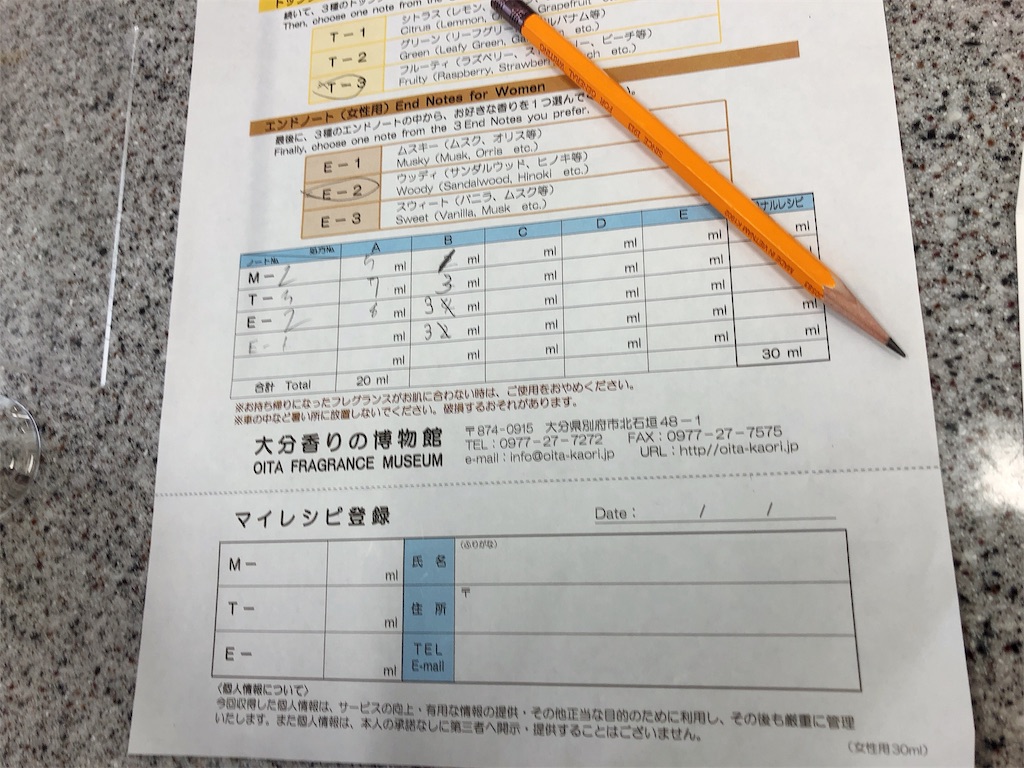 続いて、3種のトップ
Then, choose one note from the
T-1 シトラス(レモン、
Citrus (Lemmon, Grapefruit
T-2 グリーン(リーフグリ ルバナム等)
Green (Leafy Green, etc.)
T-3 フルーティ(ラズベリー、ス リー、ピーチ等)
Fruity (Raspberry, Strawber etc.)
エンドノート(女性用) End Notes for Women
最後に、3種のエンドノートの中から、お好きな香りを1つ選んで
Finally, choose one note from the 3 End Notes you prefer.
E-1 ムスキー(ムスク、オリス等)
Musky (Musk, Orris etc.)
E-2 ウッディ(サンダルウッド、ヒノキ等)
Woody (Sandalwood, Hinoki etc.)
E-3 スウィート(バニラ、ムスク等)
Sweet (Vanilla, Musk etc.)
ノートNo. 処方No. A B C D E ナルレシピ
M-2 5 ml 1 ml ml ml ml ml
T-3 7 ml 3 ml ml ml ml
E-2 8 ml 3 ml ml ml ml ml
E-1 ml 3 ml ml ml ml ml
ml ml ml ml ml 30 ml
合計 Total 20 ml
※お持ち帰りになったフレグランスがお肌に合わない時は、ご使用をおやめください。
※車の中など暑い所に放置しないでください。破損するおそれがあります。
大分香りの博物館
OITA FRAGRANCE MUSEUM
〒874-0915 大分県別府市北石垣48-1
TEL:0977-27-7272 FAX:0977-27-7575
e-mail:info@oita-kaori.jp URL:http//oita-kaori.jp
マイレシピ登録 Date: / /
M- ml 氏名 (ふりがな)
T- ml 住所 〒
E- ml TEL
E-mail
〈個人情報について〉
今回収得した個人情報は、サービスの向上・有用な情報の提供・その他正当な目的のために利用し、その後も厳重に管理
いたします。また個人情報は、本人の承諾なしに第三者へ開示・提供することはございません。
(女性用30ml)